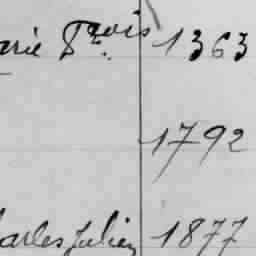 arie Fçois 1363
1792
harles Julien 1877